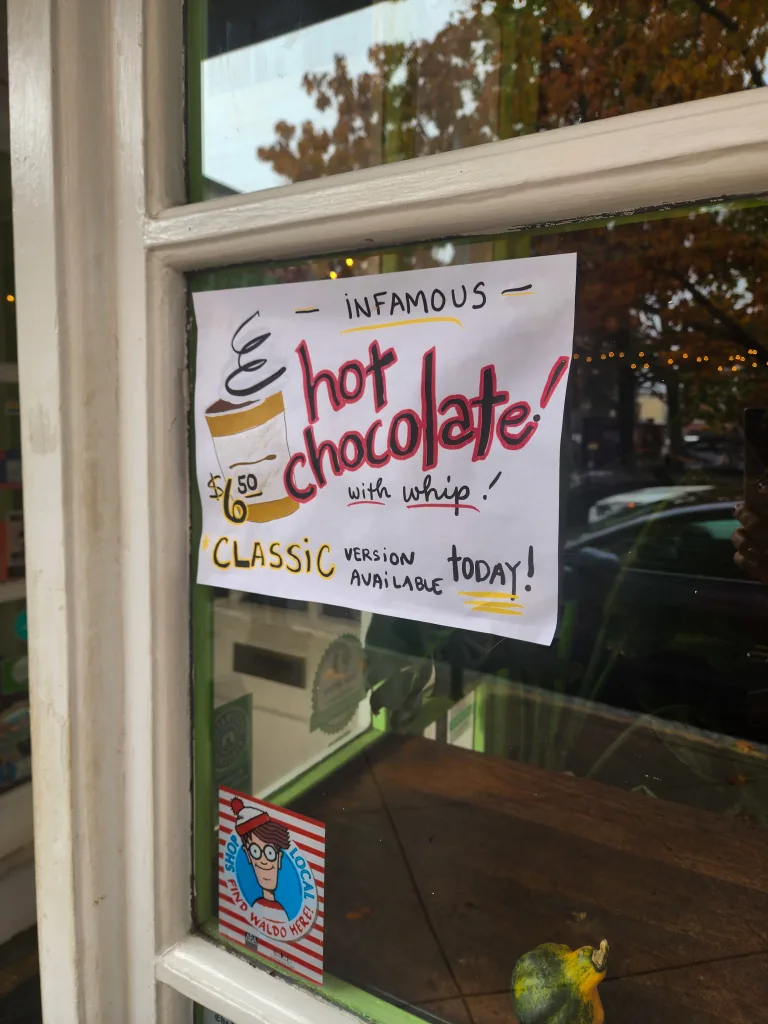 - INFAMOUS -
hot
chocolate!
$6.50
with whip!
CLASSIC VERSION AVAILABLE TODAY!
SHOP LOCAL
FIND WALDO HERE!